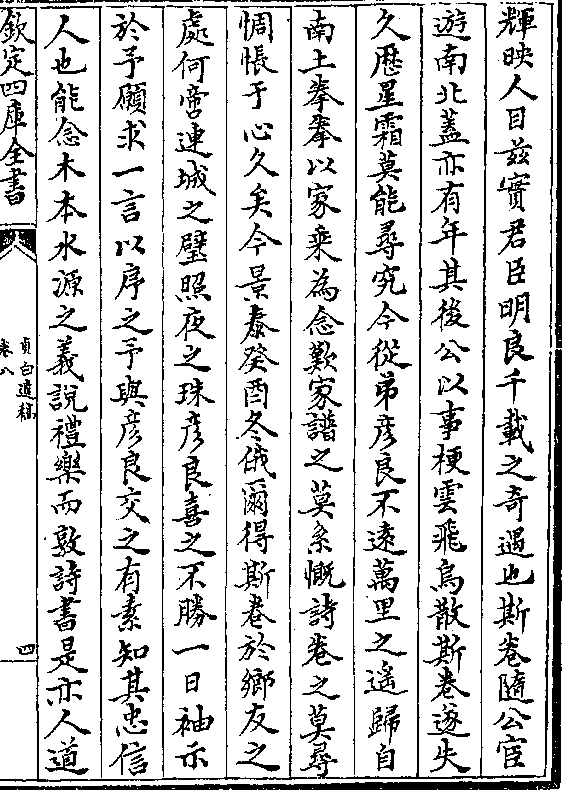 輝映人目兹實君臣明良千載之奇遇也斯卷隨公宦
遊南北蓋亦有年其後公以事梗雲飛鳥散斯卷遂失
久歷星霜莫能尋究今從弟彥良不遠萬里之遙歸自
南土拳拳以家乘為念歎家譜之莫系慨詩卷之莫尋
惆悵于心久矣今景泰癸酉冬俄爾得斯卷於鄉友之
處何啻連城之璧照夜之珠彥良喜之不勝一日袖示
於予願求一言以序之予與彥良交之有素知其忠信
人也能念木本水源之義說禮樂而敦詩書是亦人道
欽定四庫全書
貞白遺稿
卷八
四